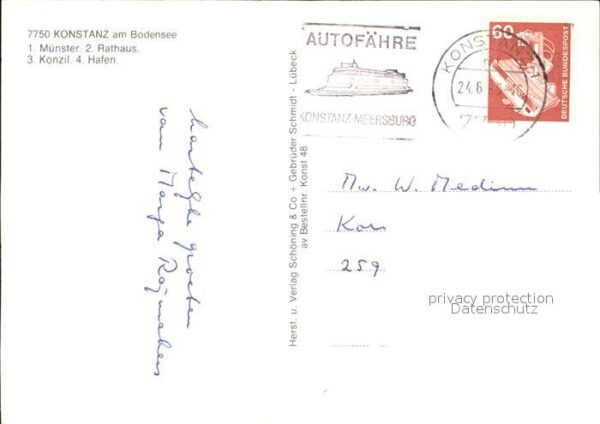 7750 KONSTANZ am Bodensee
1. Münster. 2. Rathaus.
3. Konzil. 4. Hafen.
AUTOFÄHRE
KONSTANZ-MEERSBURG
KONSTANZ
24.6.
60
DEUTSCHE BUNDESPOST
Herst. u. Verlag Schöning & Co + Gebrüder Schmidt - Lübeck
av Bestellnr. Konst 48
hartelijke groeten
van Marga Raijmakers
Mw. W.
259
privacy protection
Datenschutz